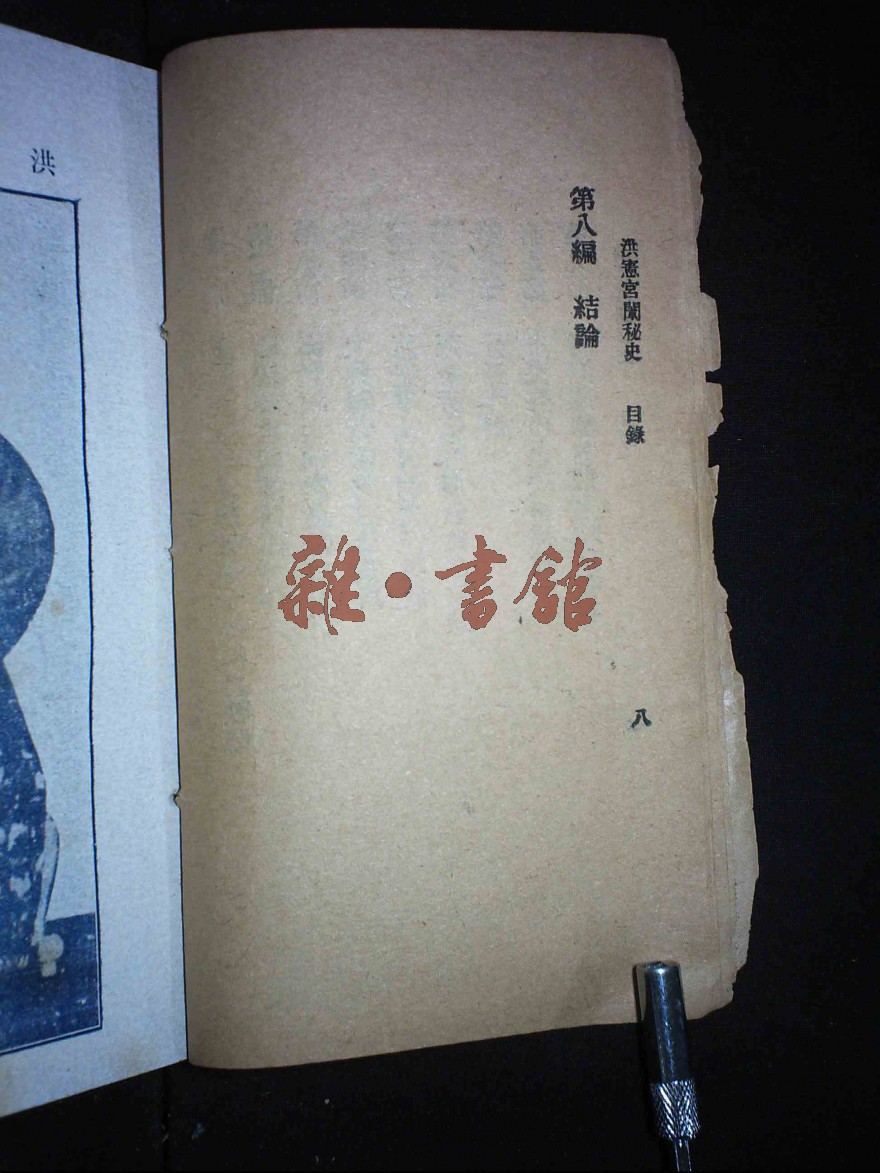 洪憲宮闈秘史 目錄 八
第八編 結論
雜·書館
洪